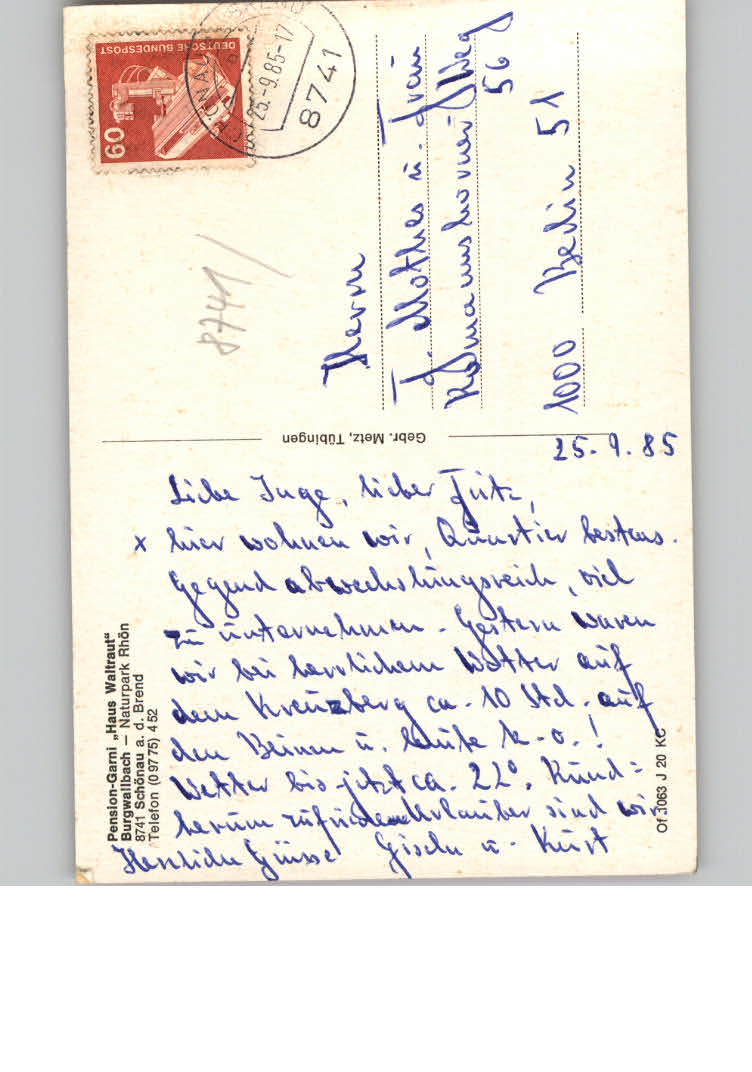 DEUTSCHE BUNDESPOST
60
25.-9.85-17
8741
8741
Herrn
F. Mothes u. Frau
Romanshorner Weg
56
1000 Berlin 51
Gebr. Metz, Tübingen
25.9.85
Liebe Inge, lieber Fritz,
x hier wohnen wir, Quartier bestens.
Gegend abwechslungsreich, viel
zu unternehmen. Gestern waren
wir bei herrlichem Wetter auf
dem Kreuzberg ca. 10 Std. auf
den Beinen u. heute k.o.!
Wetter bis jetzt ca. 22°. Rund=
herum zufriedene Urlauber sind wir
Herzliche Grüsse Gisela u. Kurt
Pension-Garni „Haus Waltraut"
Burgwallbach — Naturpark Rhön
8741 Schönau a. d. Brend
Telefon (0 97 75) 4 52
Of 3063 J 20 KC